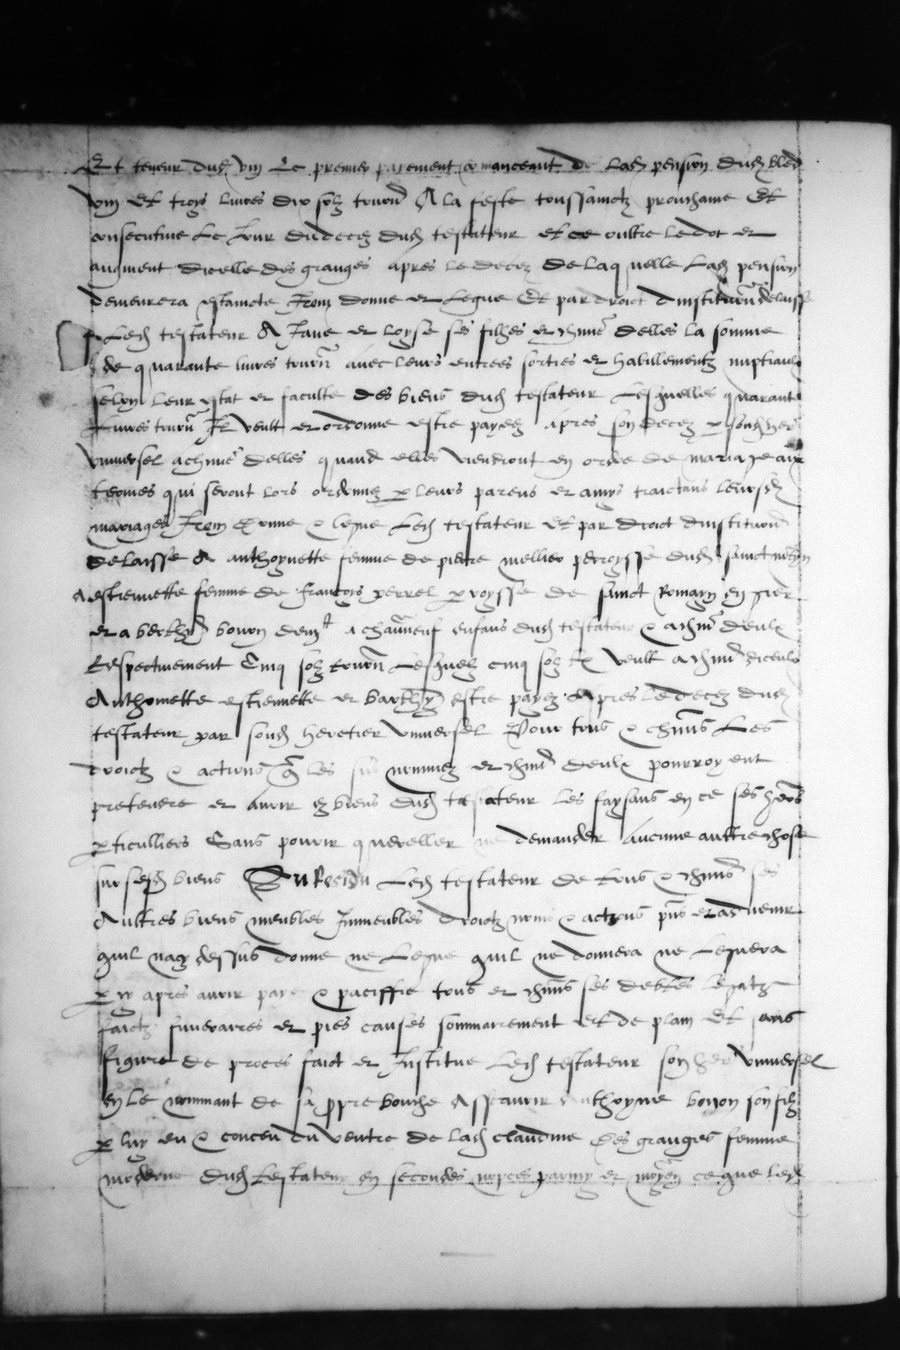 Et teneur dud vin Le premier paiement comanceant de lad pension dud bled
vin et troys livres dix solz tourn A la feste toussainctz prouchaine et
consecutive le jour du decez dud testateur et ce oultre le dot et
augment dicelle des granges apres le decez de laquelle lad pension
demeurera estaincte Item donne et legue et par droict dinstitution delaisse
led testateur A Jane et loyse ses filhes et chune delles la somme
de quarante livres tourn avec leurs entrees sorties et habillementz nuptiaulx
selon leur estat et faculte des biens dud testateur Lesquelles quarante
Livres tourn Il veult et ordonne estre payees apres son decez p sond her
universel a chune delles quand elles viendront en ordre de mariage aux
termes qui seront lors ordonnez p leurs parens et amys traictans leursd
mariages Item donne & legue led testateur et par droict dinstitution
delaisse A anthoynette femme de pierre mellier perroysse dud sainct
A estiennette femme de francoys perrel p roysse de sainct Romain en gier
et a berthy bonon dem a chauneuf enfans dud testateur & a chun deulx
Respectivement Cinq solz tourn Lesquelz cinq solz tz veult a chun diceulx
Anthoinette estiennette et barthy estre payez Apres le decez dud
testateur par sond heretier universel Pour tous & chuns Les
droictz & actions que les sus nommez et chun deulx pourroyent
pretendre et avoir es biens dud testateur les faysans en ce ses hers
p ticulliers Sans pouvoir quereller ne demander aucune aultre chose
sur sesd biens Du Residu Led testateur de tous & chuns ses
Aultres biens meubles Immeubles droictz noms & actions pns et advenir
quil na cy dessus donne ne legue quil ne donnera ne leguera
p cy apres avoir paye & paciffie tous et chuns ses debtes legatz
faictz funeraires et pies causes sommairement et de plain et sans
figure de proces faict et Institue Led testateur son her universel
en le nommant de sa propre bouche Assavoir Anthoyne bonon son filz
p luy eu & conceu du ventre de lad claudine des granges femme
moderne dud testateur en secondes nopces parmy et moyen ce que led